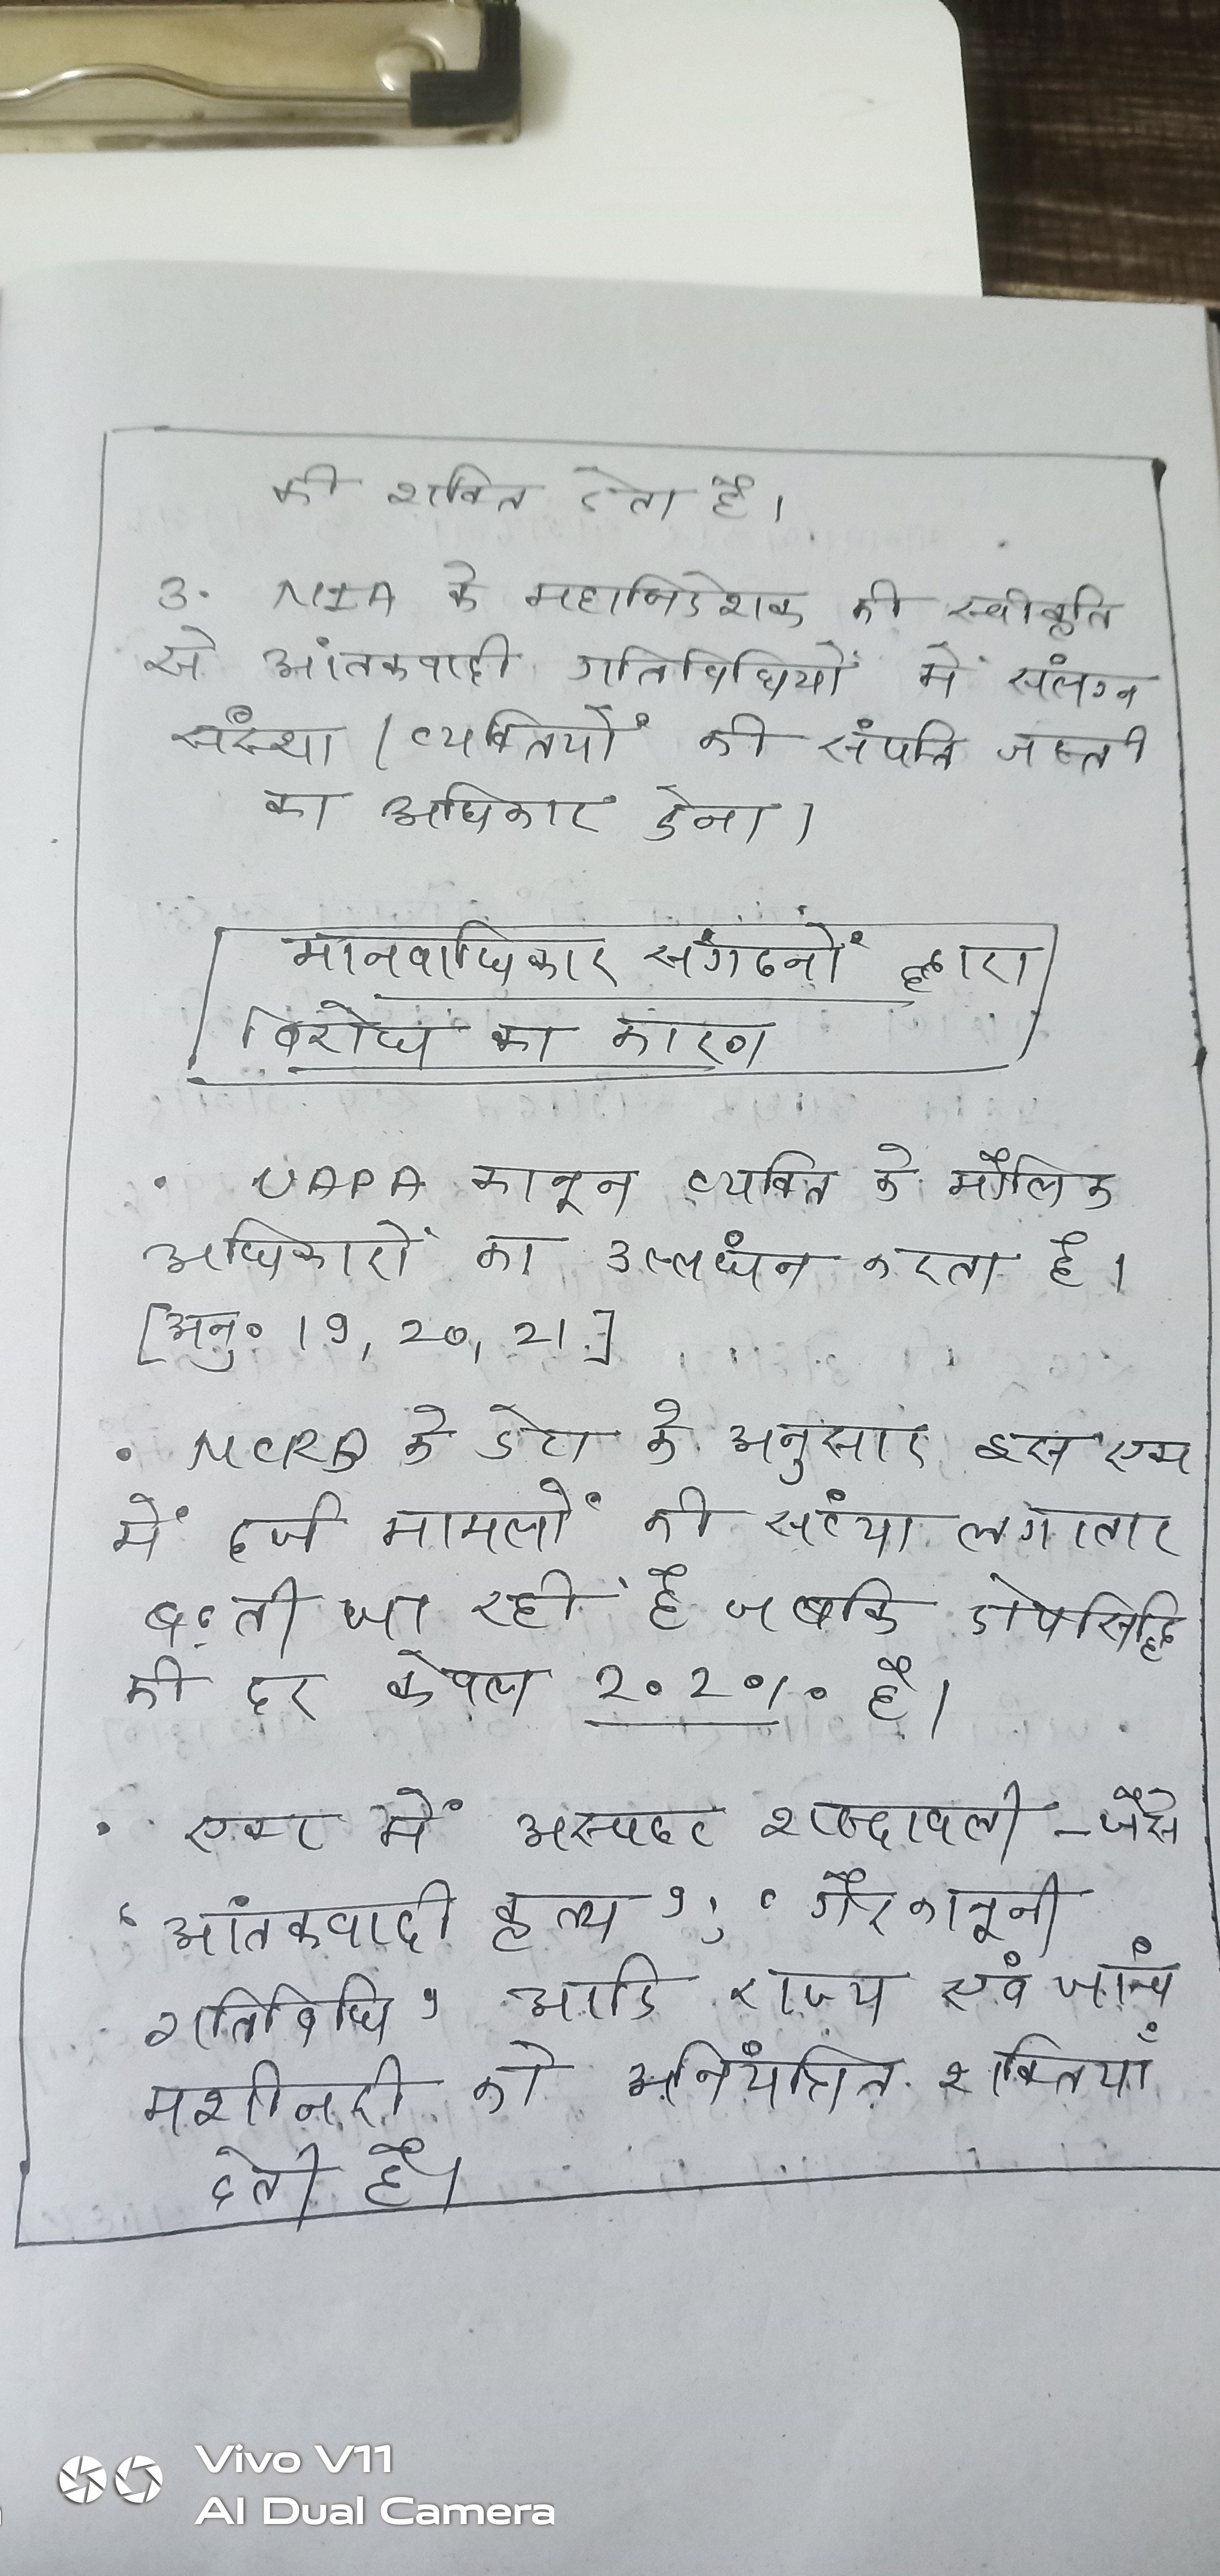 की शक्ति देता है।
3. NIA के महानिदेशक की स्वीकृति
से आंतकवादी गतिविधियों में संलग्न
संस्था / व्यक्तियों की संपत्ति जब्ती
का अधिकार देना।
मानवाधिकार संगठनों द्वारा
विरोध का कारण
• UAPA कानून व्यक्ति के मौलिक
अधिकारों का उल्लघंन करता है।
[अनु० 19, 20, 21]
• NCRB के डेटा के अनुसार इस एक्ट
में दर्ज मामलों की सख्ंया लगातार
बढ़ती जा रही है जबकि दोषसिद्धि
की दर केवल 2.2% है।
• एक्ट में अस्पष्ट शब्दावली - जैसे
'आंतकवादी कृत्य', 'गैरकानूनी
गतिविधि' आदि राज्य एवं जांच
मशीनरी को अनियंत्रित शक्तियाँ
देती है।
Vivo V11
AI Dual Camera